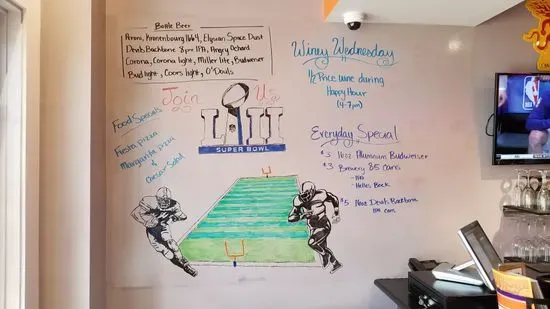 Bottle Beer
Peroni, Kronenbourg 1664, Elysian Space Dust
Devils Backbone 8pt IPA, Angry Orchard
Corona, Corona light, Miller lite, Budweiser
Bud light, Coors light, O'Douls
Join Us
LII
SUPER BOWL
Food Specials
Fiesta pizza
Margarita pizza
&
Caesar Salad
Winey Wednesday
1/2 Price wine during
Happy Hour
(4-7pm)
Everyday Special
$3 16oz Aluminum Budweiser
$3 Brewery 85 cans
- IPA
- Helles Bock
$5 Devils Backbone
IPA cans